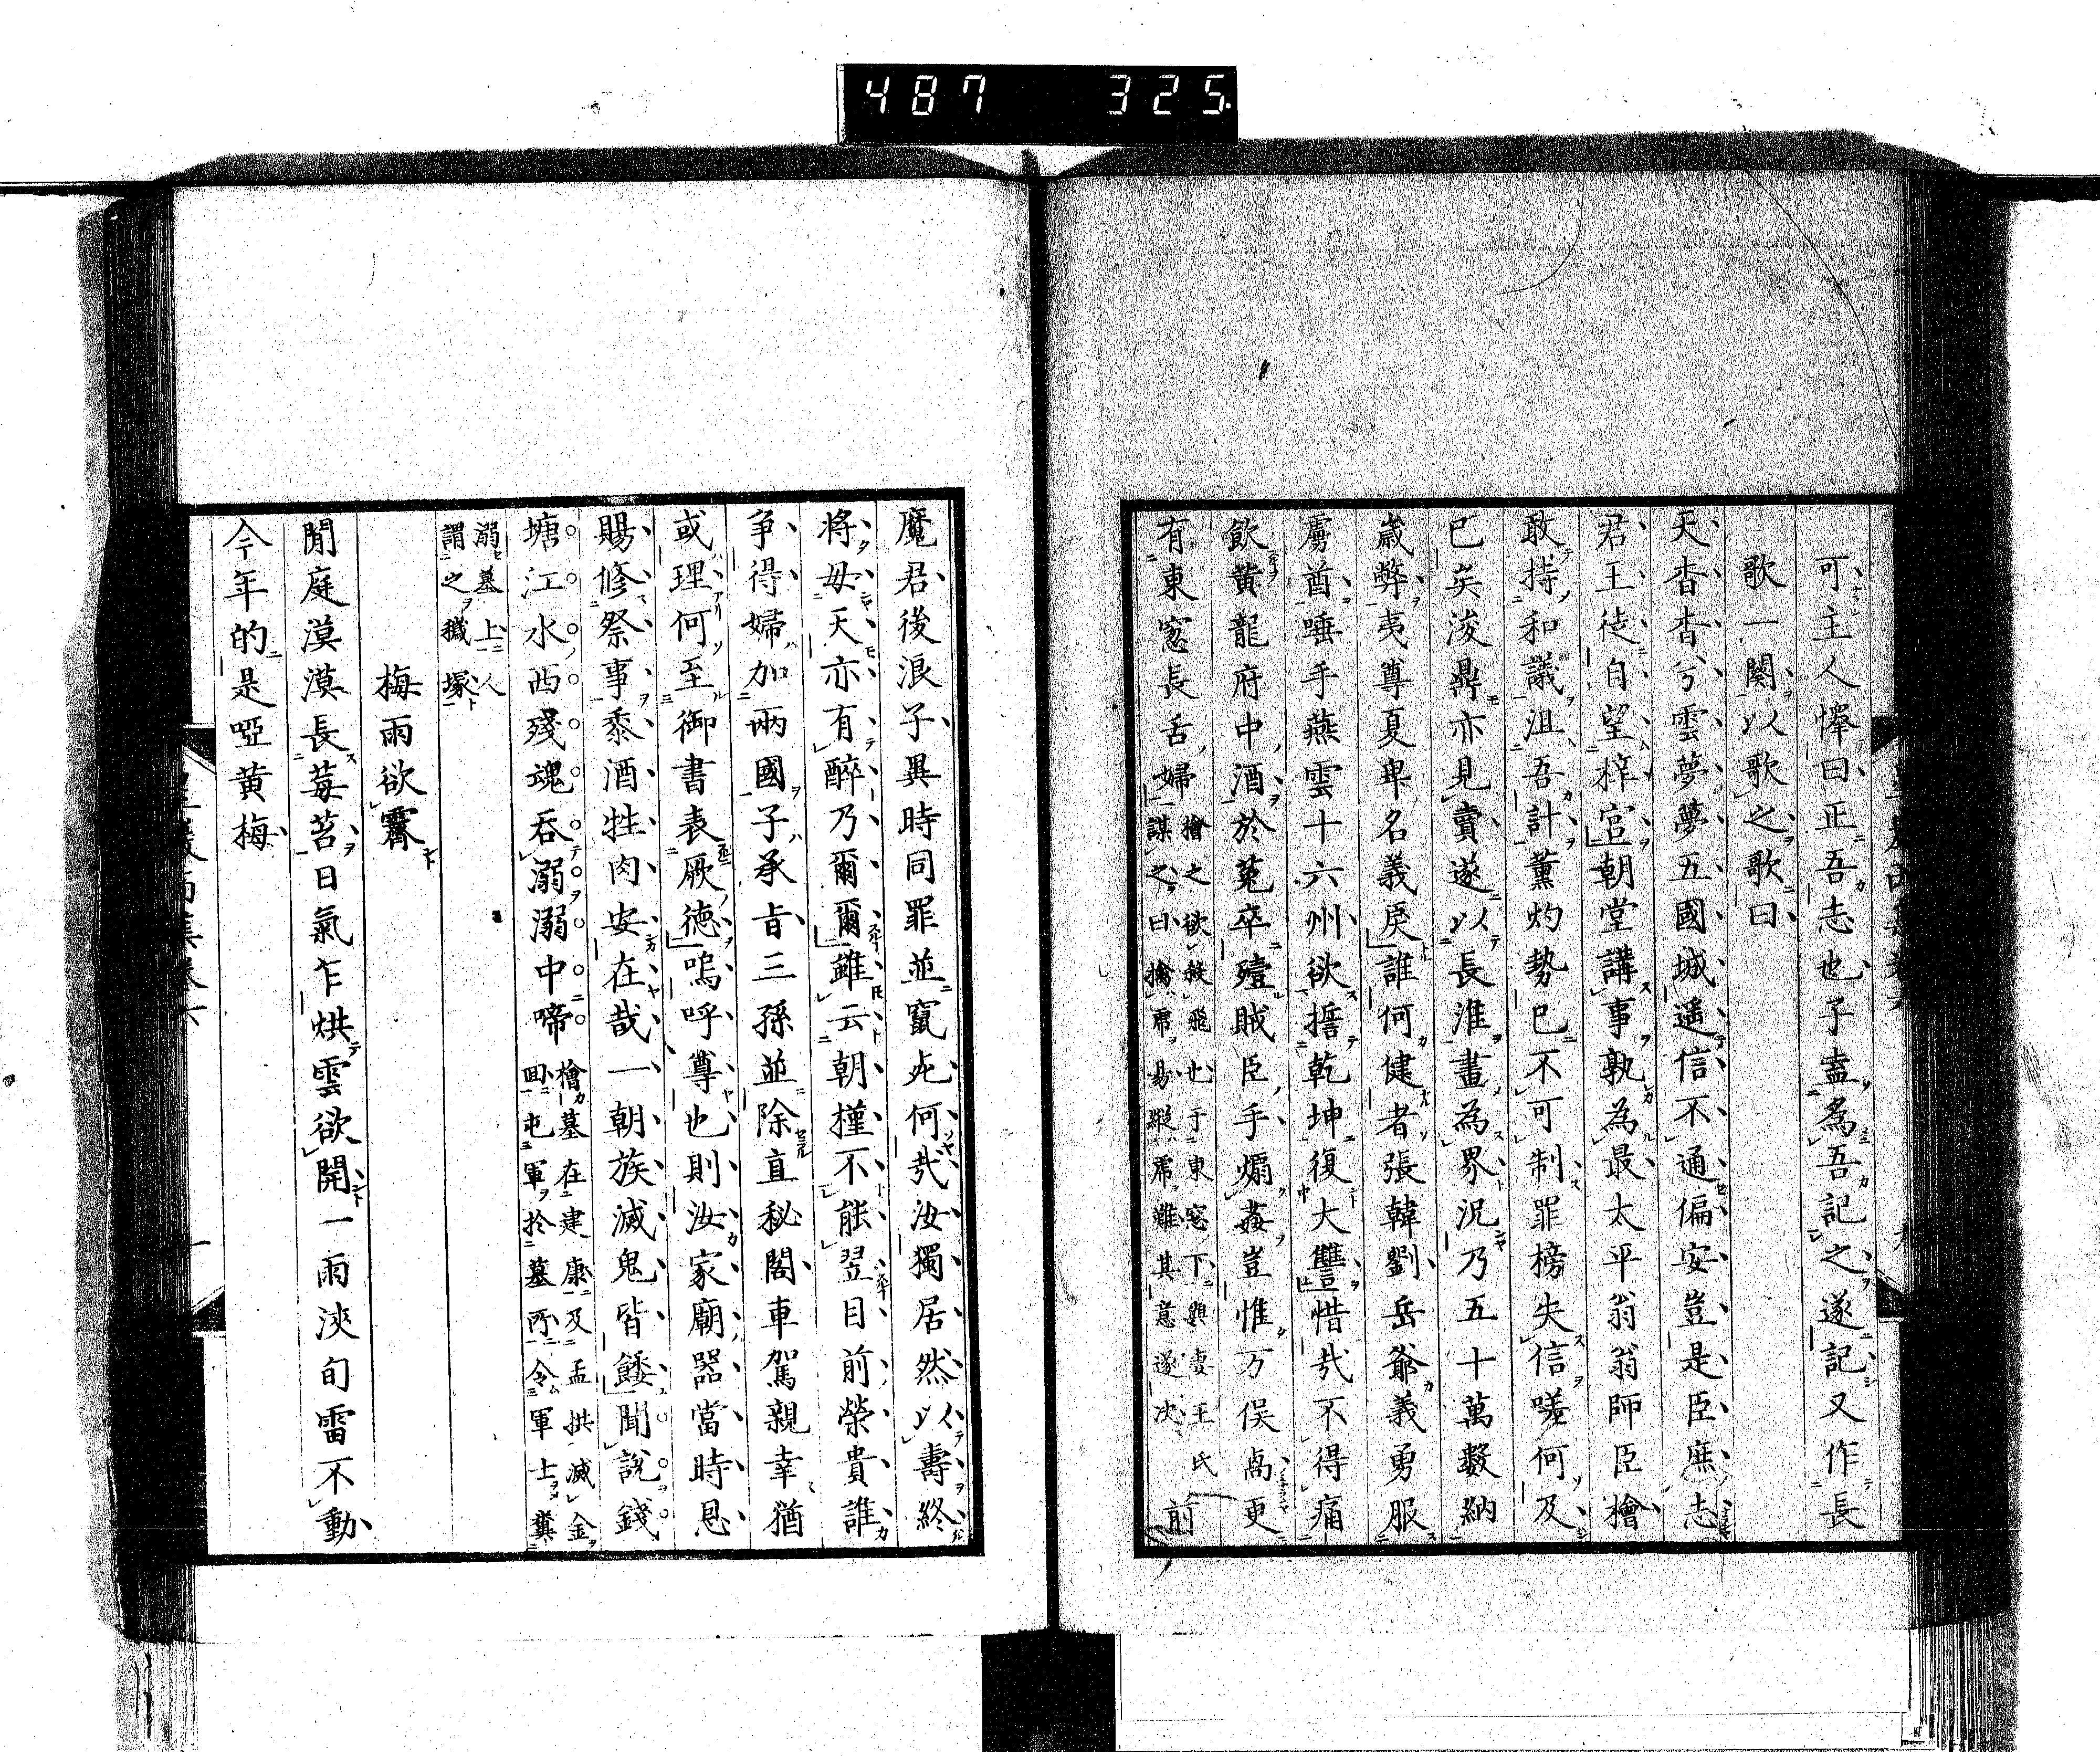 487 325
可主人懌曰正吾志也子盍為吾記之遂記又作長
歌一闋以歌之歌曰
天杳杳兮雲夢夢五國城遥信不通偏安豈是臣庶志
君王徒自望梓宮朝堂講事孰為最太平翁翁師臣檜
敢持和議沮吾計薰灼勢已不可制罪榜失信嗟何及
已矣浚鼎亦見賣遂以長淮畫為界況乃五十萬數納
歳弊夷尊夏卑名義戻誰何健者張韓劉岳爺義勇服
虜酋唾手燕雲十六州欲擔乾坤復大讐惜哉不得痛
飲黄龍府中酒於菟卒殪賊臣手煽姦豈惟万俟卨更
有東窓長舌婦檜之欲殺飛也于東窓下與妻王氏謀之曰擒席易縦席難其意遂决前
魔君後浪子異時同罪並竄死何哉汝獨居然以壽終
将毋天亦有醉乃爾爾雖云朝槿不能翌目前榮貴誰
争得婦加兩國子承旨三孫並除直秘閣車駕親幸猶
或理何至御書表厥德嗚呼尊也則汝家廟器當時恩
賜修祭事黍酒牲肉安在哉一朝族滅鬼皆餒聞説錢
塘江水西殘魂呑溺溺中啼檜墓在建康及孟拱滅金回屯軍於墓所令軍士糞
溺墓上人謂之穢塚
梅雨欲霽
閒庭漠漠長莓苔日氣乍烘雲欲開一雨浹旬雷不動
今年的是啞黄梅